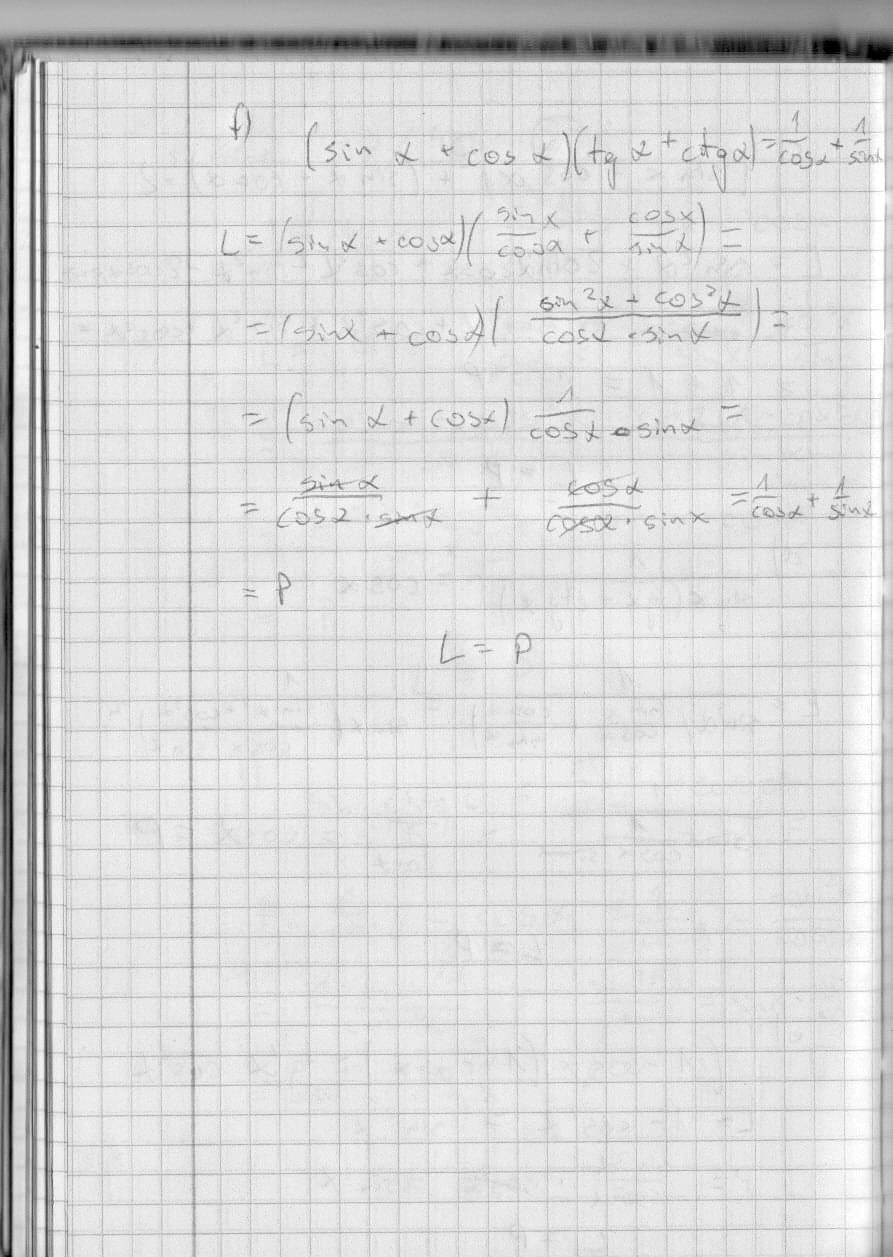 f)
(sin α + cos α)(tg α + ctg α) = 1/cos α + 1/sin α
L = (sin α + cos α)(sin α/cos α + cos α/sin α) =
= (sin α + cos α)(sin²α + cos²α/cos α · sin α) =
= (sin α + cos α) 1/cos α · sin α =
= sin α/cos α · sin α + cos α/cos α · sin α = 1/cos α + 1/sin α
= P
L = P